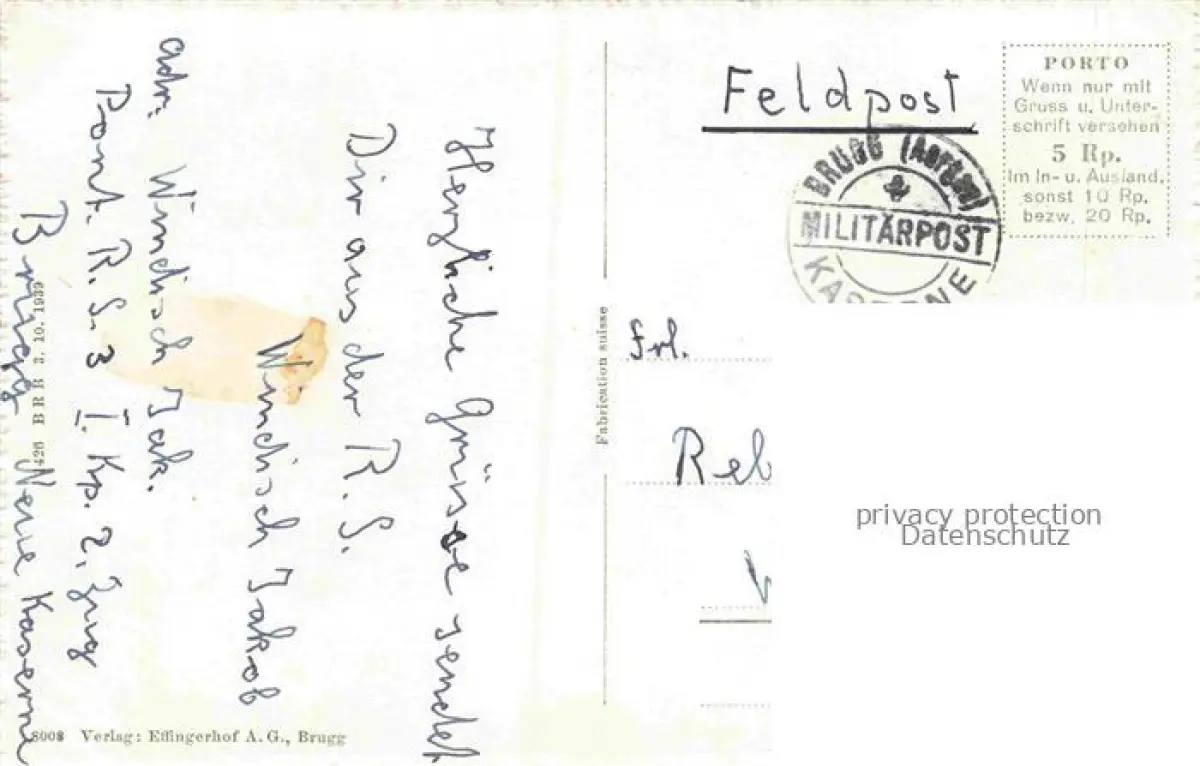 Herzliche Grüsse sendet
Dir aus der R. S.
Windisch Jakob
adr. Windisch Jak.
Pont. R. S. 3 I. Kp. 2. Zug
Brugg Neue Kaserne
426 BRB 3. 10. 1939
8008 Verlag: Effingerhof A. G., Brugg
Fabrication suisse
Feldpost
BRUGG (Aargau)
MILITÄRPOST
KASERNE
PORTO
Wenn nur mit
Gruss u. Unter-
schrift versehen
5 Rp.
Im In- u. Ausland,
sonst 10 Rp.
bezw. 20 Rp.
Frl.
privacy protection
Datenschutz